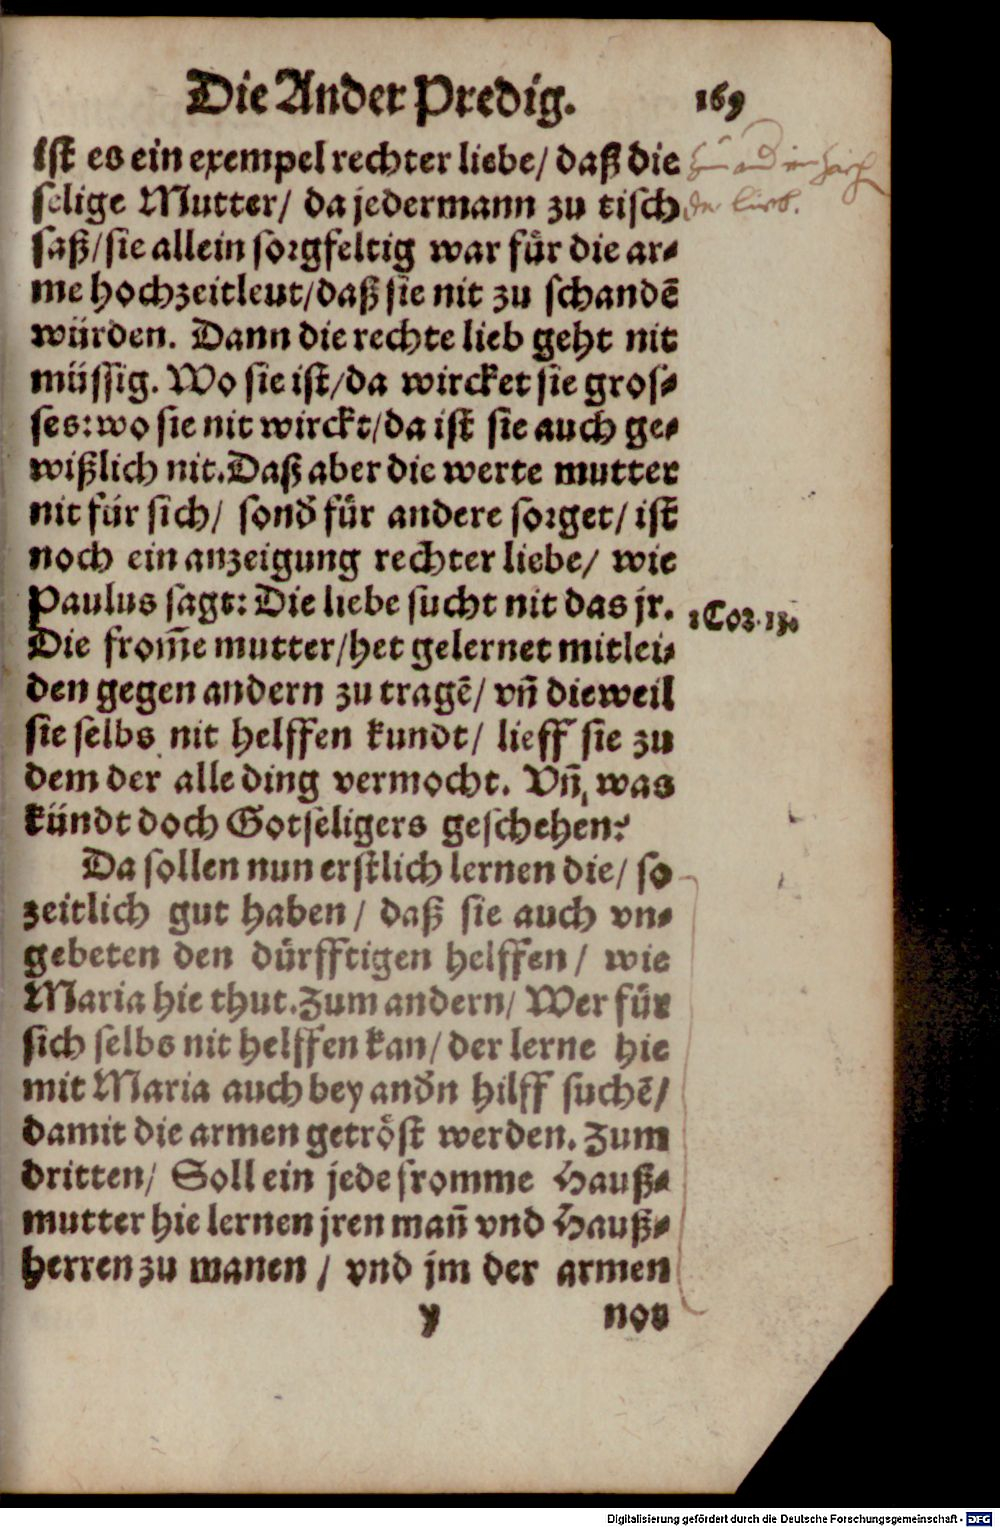 Die Ander Predig. 169
ist es ein exempel rechter liebe/ daß die
selige Mutter/ da jedermann zu tisch
saß/ sie allein sorgfeltig war für die ar-
me hochzeitleut/ daß sie nit zu schandē
würden. Dann die rechte lieb geht nit
müssig. Wo sie ist/ da wircket sie gros-
ses: wo sie nit wirckt/ da ist sie auch ge-
wißlich nit. Daß aber die werte mutter
nit für sich/ sond̄ für andere sorget/ ist
noch ein anzeigung rechter liebe/ wie
Paulus sagt: Die liebe sucht nit das jr.
1 Cor. 13.
Die from̄e mutter/ het gelernet mitlei-
den gegen andern zu tragē/ vn̄ dieweil
sie selbs nit helffen kundt/ lieff sie zu
dem der alle ding vermocht. Vn̄ was
kündt doch Gotseligers geschehen?
Da sollen nun erstlich lernen die/ so
zeitlich gut haben/ daß sie auch vn-
gebeten den dürfftigen helffen/ wie
Maria hie thut. Zum andern/ Wer für
sich selbs nit helffen kan/ der lerne hie
mit Maria auch bey and̄n hilff suchē/
damit die armen getröst werden. Zum
dritten/ Soll ein jede fromme Hauß-
mutter hie lernen jren man̄ vnd Hauß-
herren zu manen/ vnd jm der armen
y not
Digitalisierung gefördert durch die Deutsche Forschungsgemeinschaft - DFG